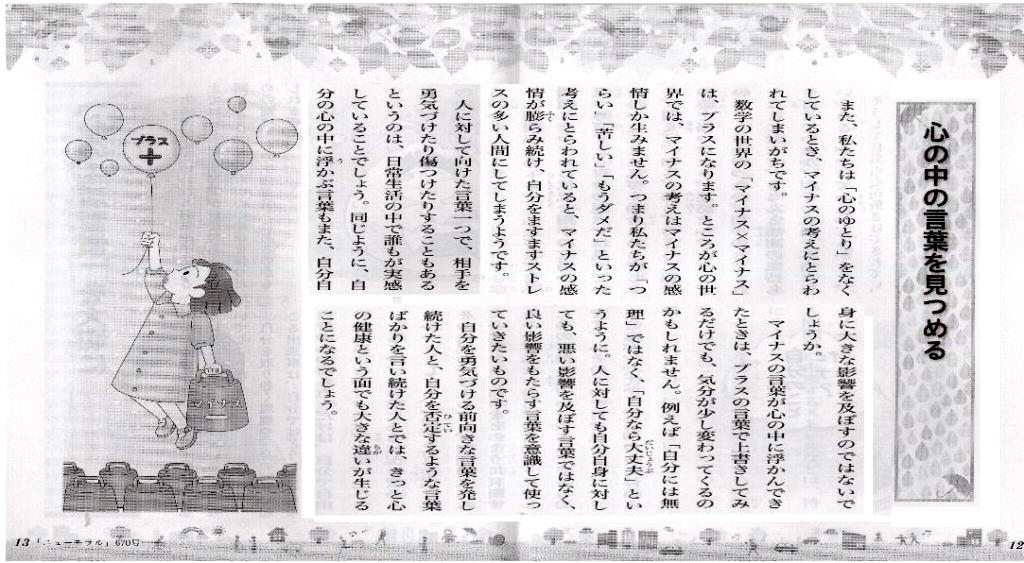 心の中の言葉を見つめる
また、私たちは「心のゆとり」をなく
しているとき、マイナスの考えにとらわ
れてしまいがちです。
数学の世界の「マイナス×マイナス」
は、プラスになります。ところが心の世
界では、マイナスの考えはマイナスの感
情しか生みません。つまり私たちが「つ
らい」「苦しい」「もうダメだ」といった
考えにとらわれていると、マイナスの感
情が膨らみ続け、自分をますますストレ
スの多い人間にしてしまうようです。
人に対して向けた言葉一つで、相手を
勇気づけたり傷つけたりすることもある
というのは、日常生活の中で誰もが実感
していることでしょう。同じように、自
分の心の中に浮かぶ言葉もまた、自分自
身に大きな影響を及ぼすのではないで
しょうか。
マイナスの言葉が心の中に浮かんでき
たときは、プラスの言葉で上書きしてみ
るだけでも、気分が少し変わってくるの
かもしれません。例えば「自分には無
理」ではなく、「自分なら大丈夫」とい
うように。人に対しても自分自身に対し
ても、悪い影響を及ぼす言葉ではなく、
良い影響をもたらす言葉を意識して使っ
ていきたいものです。
自分を勇気づける前向きな言葉を発し
続けた人と、自分を否定するような言葉
ばかりを言い続けた人とでは、きっと心
の健康という面でも大きな違いが生じる
ことになるでしょう。
プラス
+
マイナス
13「ニューモラル」670号
12